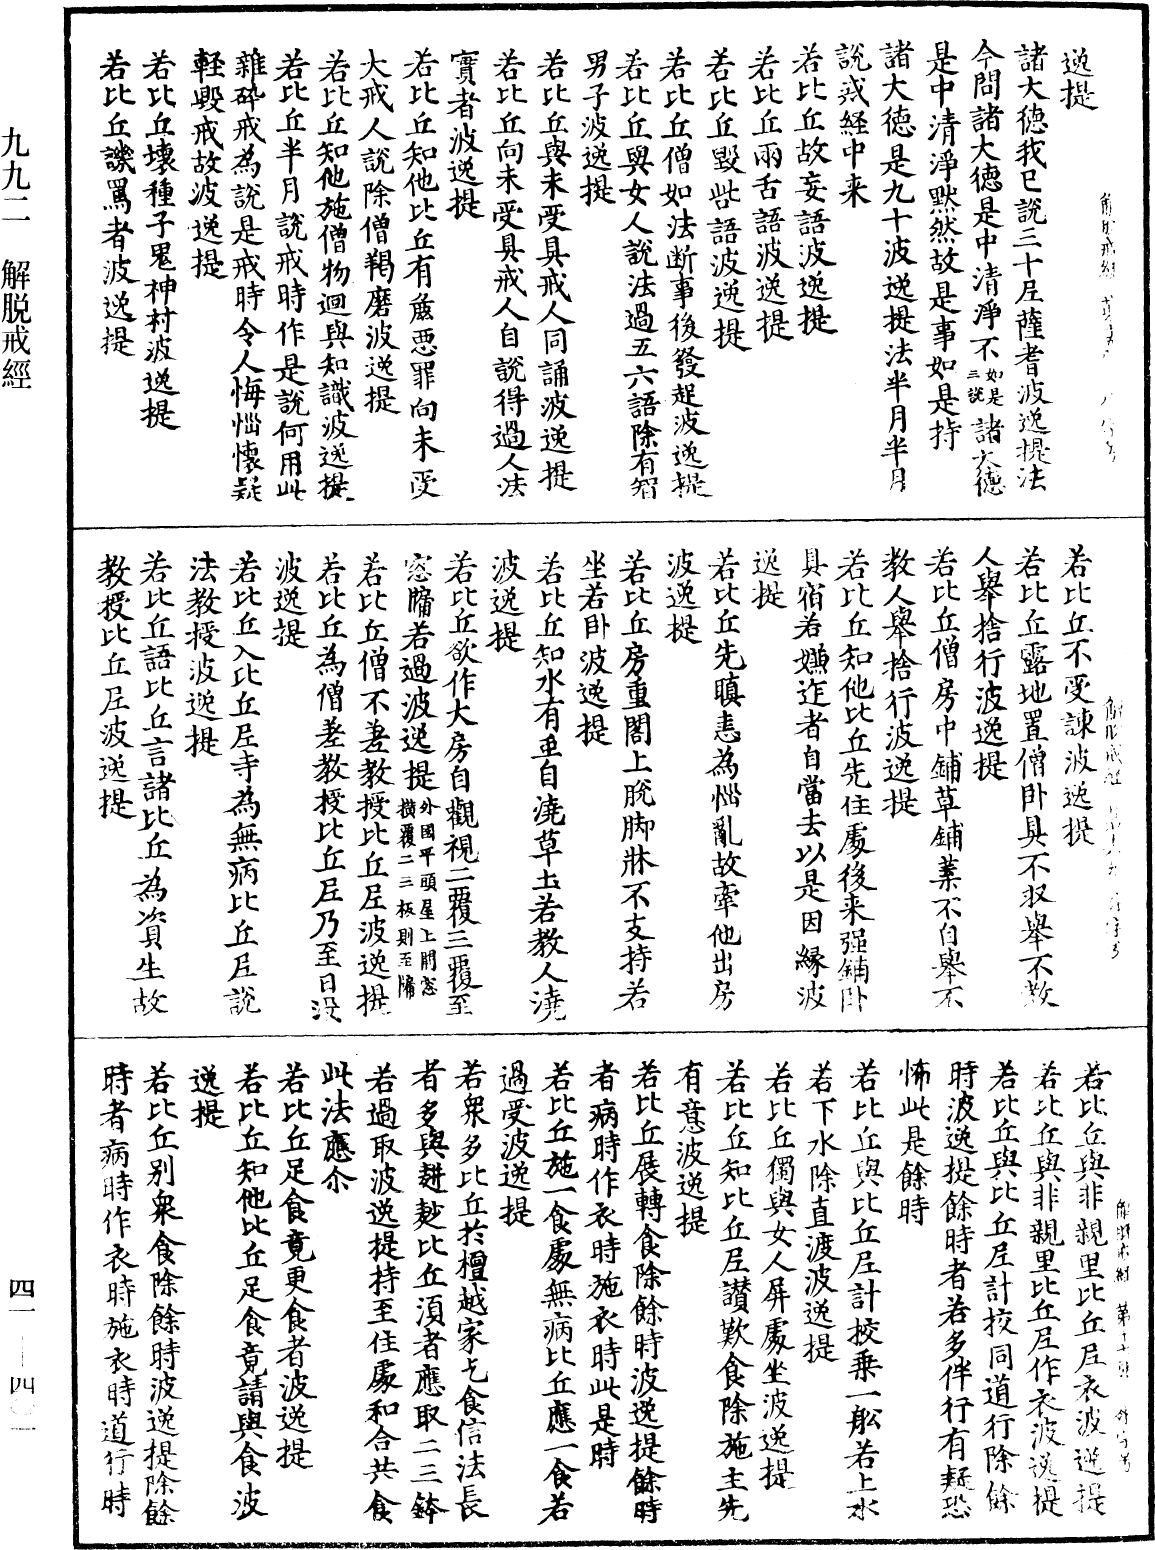 逸提
諸大德我已說三十尼薩耆波逸提法
今問諸大德是中清淨不如是三說諸大德
是中清淨默然故是事如是持
諸大德是九十波逸提法半月半月
說戒經中来
若比丘故妄語波逸提
若比丘兩舌語波逸提
若比丘毀呰語波逸提
若比丘僧如法断事後發起波逸提
若比丘與女人說法過五六語除有智
男子波逸提
若比丘與未受具戒人同誦波逸提
若比丘向未受具戒人自說得過人法
實者波逸提
若比丘知他比丘有麁惡罪向未受
大戒人說除僧羯磨波逸提
若比丘知他施僧物迴與知識波逸提
若比丘半月說戒時作是說何用此
雜碎戒為說是戒時令人悔惱懷疑
輕毀戒故波逸提
若比丘壞種子鬼神村波逸提
若比丘譏罵者波逸提
若比丘不受諫波逸提
若比丘露地置僧卧具不収舉不教
人舉捨行波逸提
若比丘僧房中鋪草鋪葉不自舉不
教人舉捨行波逸提
若比丘知他比丘先住處後来强鋪卧
具宿若嫌迮者自當去以是因緣波
逸提
若比丘先瞋恚為惱亂故牽他出房
波逸提
若比丘房重閣上脫脚牀不支持若
坐若卧波逸提
若比丘知水有虫自澆草土若教人澆
波逸提
若比丘欲作大房自觀視二覆三覆至
窓牖若過波逸提外國平頭屋上開窓橫覆二三板則至牖
若比丘僧不差教授比丘尼波逸提
若比丘為僧差教授比丘尼乃至日没
波逸提
若比丘入比丘尼寺為無病比丘尼說
法教授波逸提
若比丘語比丘言諸比丘為資生故
教授比丘尼波逸提
若比丘與非親里比丘尼衣波逸提
若比丘與非親里比丘尼作衣波逸提
若比丘與比丘尼計挍同道行除餘
時波逸提餘時者若多伴行有疑恐
怖此是餘時
若比丘與比丘尼計挍乗一舩若上水
若下水除直渡波逸提
若比丘獨與女人屏處坐波逸提
若比丘知比丘尼讚歎食除施主先
有意波逸提
若比丘展轉食除餘時波逸提餘時
者病時作衣時施衣時此是時
若比丘施一食處無病比丘應一食若
過受波逸提
若衆多比丘於檀越家乞食信法長
者多與䴵麨比丘湏者應取二三鉢
若過取波逸提持至住處和合共食
此法應尒
若比丘足食竟更食者波逸提
若比丘知他比丘足食竟請與食波
逸提
若比丘別衆食除餘時波逸提除餘
時者病時作衣時施衣時道行時
九九二 解脱戒經
四一—四〇一